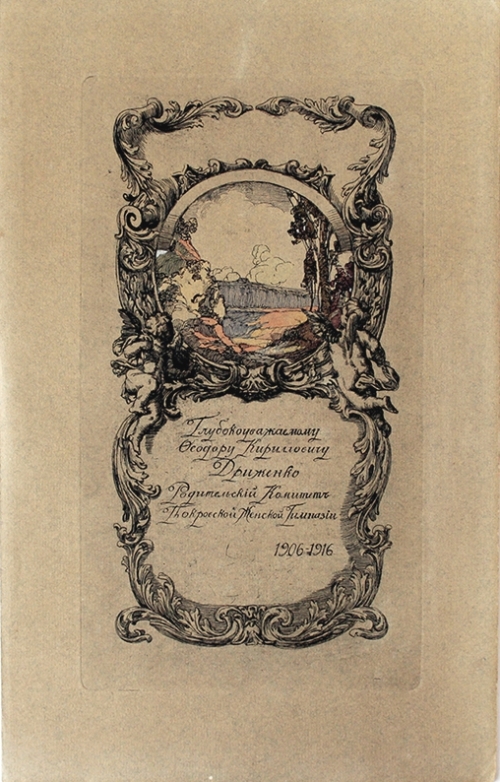 Глубокоуважаемому
Ѳеодору Кирилловичу
Дриженко
Родительскій Комитетъ
Покровской Женской Гимназіи
1906-1916